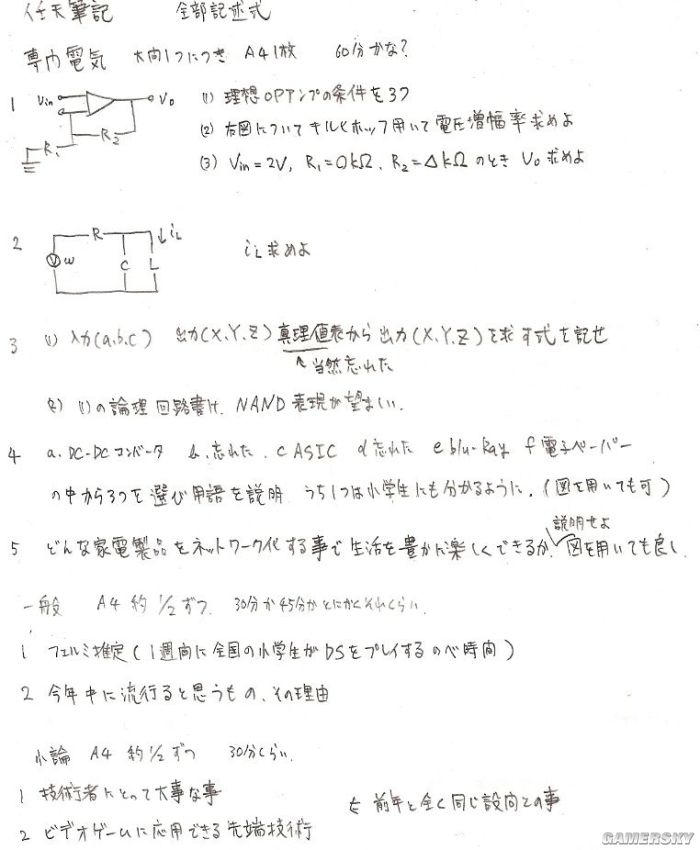 任天筆記 全部記述式
専門電気 大問1つにつき A4 1枚 60分かな?
1 Vin Vo R1 R2 (1) 理想OPアンプの条件を3つ
(2) 右図について キルヒホッフ用いて 電圧増幅率求めよ
(3) Vin=2V, R1=○kΩ, R2=△kΩ のとき Vo 求めよ
2 R ↓iL V ω C L iL求めよ
3 (1) 入力(a.b.c) 出力(X.Y.Z) 真理値表から 出力(X.Y.Z)を求す式を記せ
↖当然忘れた
(2) (1)の論理回路書け. NAND 表現が望ましい.
4 a. DC-DCコンバータ b. 忘れた. c ASIC d 忘れた e blu-Ray f 電子ペーパー
の中から3つを選び用語を説明 うち1つは小学生にも分かるように. (図を用いても可)
5 どんな家電製品をネットワーク化する事で生活を豊かに楽しくできるか. 説明せよ 図を用いても良し.
一般 A4 約 1/2 ずつ. 30分か45分かとにかくそれくらい.
1 フェルミ推定 (1週間に全国の小学生がDSをプレイするのべ時間)
2 今年中に流行ると思うもの、その理由
小論 A4 約 1/2 ずつ 30分くらい.
1 技術者にとって大事な事
2 ビデオゲームに応用できる先端技術
前年と全く同じ設問との事
GAMERSKY